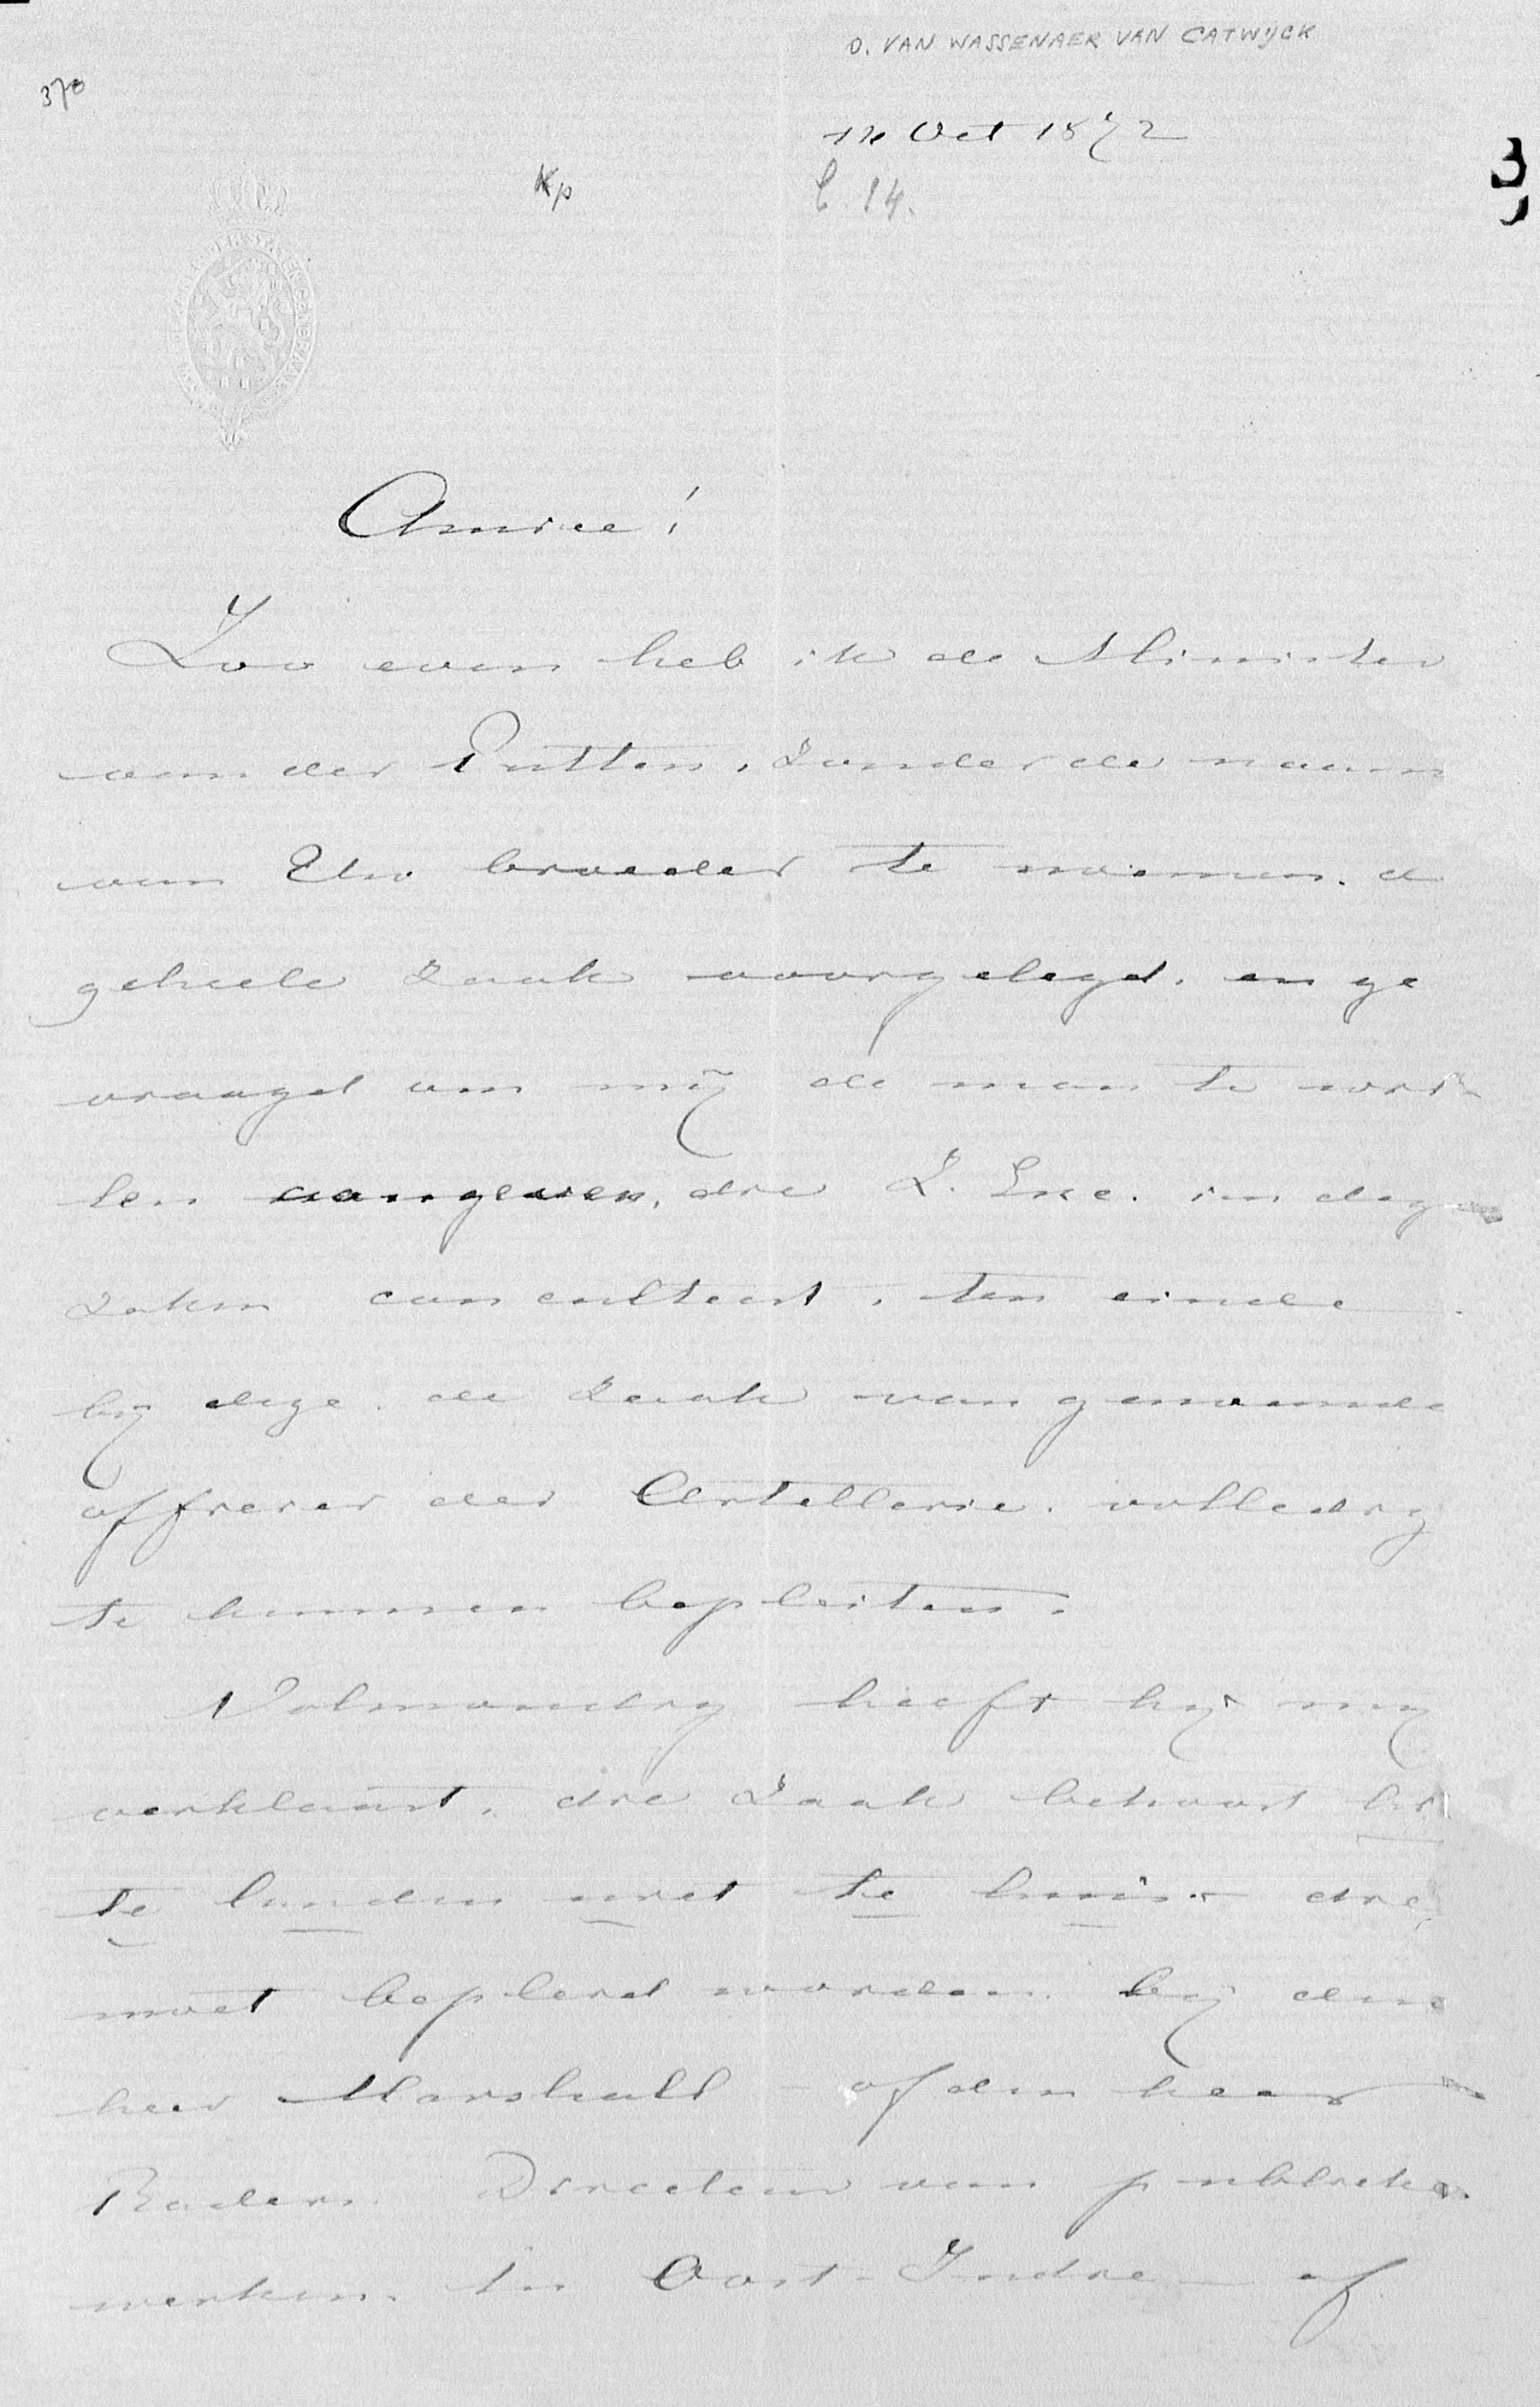 O. VAN WASSENAER VAN CATWIJCK
370
12 Oct 1872
Kp
C. 14.
Amice!
Zoo even heb ik de Minister
van der Putten, zonder de naam
van Uw broeder te noemen. de
geheele zaak voorgelegd. en ge
vraagd om mij de man te wil
len aangeven, die Z. Exc. in deze
zaken consulteert, ten einde
bij deze de zaak van genoemde
officier der Artellerie. volledig
te kunnen bepleiten.
Volmondig heeft hij mij
verklaart, die zaak behoort hier
te landen niet te huis. die
moet bepleid worden bij den
heer Marshall of den heer
Raders. Directeur van publieke
werken. in Oost-Indie - of